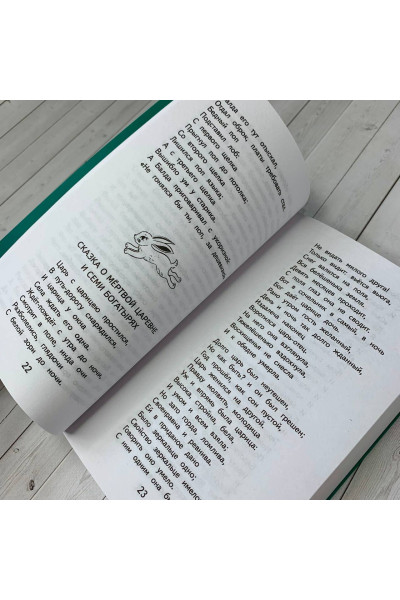 Балда его тут отыскал,
Отдал оброк, платы требовать стал.
Бедный поп
Подставил лоб:
С первого щелка
Прыгнул поп до потолка;
Со второго щелка
Лишился поп языка;
А с третьего щелка
Вышибло ум у старика.
А Балда приговаривал с укоризной:
«Не гонялся бы ты, поп, за дешевизной».
СКАЗКА О МЁРТВОЙ ЦАРЕВНЕ
И СЕМИ БОГАТЫРЯХ
Царь с царицею простился,
В путь-дорогу снарядился,
И царица у окна
Села ждать его одна.
Ждёт-пождёт с утра до ночи,
Смотрит в поле, инда очи
Разболелись, глядючи
С белой зори до ночи,
22
Не видать милого друга!
Только видит: вьётся вьюга,
Снег валится на поля,
Вся белёшенька земля.
Девять месяцев проходит,
С поля глаз она не сводит.
Вот в сочельник в самый, в ночь
Бог даёт царице дочь.
Рано утром гость желанный,
День и ночь так долго жданный,
Издалеча наконец
Воротился царь-отец.
На него она взглянула,
Тяжелёшенько вздохнула,
Восхищенья не снесла
И к обедне умерла.
Долго царь был неутешен,
Но как быть? и он был грешен;
Год прошёл, как сон пустой,
Царь женился на другой.
Правду молвить, молодица
Уж и впрямь была царица:
Высока, стройна, бела,
И умом и всем взяла;
Но зато горда, ломлива,
Своенравна и ревнива.
Ей в приданое дано
Было зеркальце одно;
Свойство зеркальце имело:
Говорить оно умело.
С ним одним она была
23